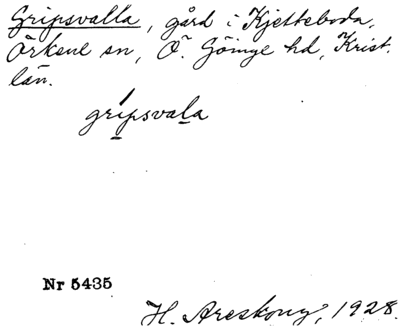 Gripsvalla, gård i Kjetteboda,
Örkene sn, Ö. Göinge hd, Krist.
län.
gripsvala
Nr 5435
H. Areskoug, 1928.